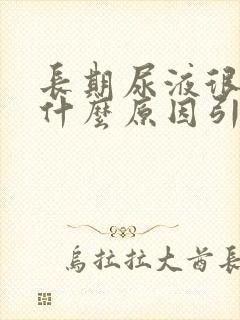 長期尿液很
什麼原因引
烏拉拉大酋長